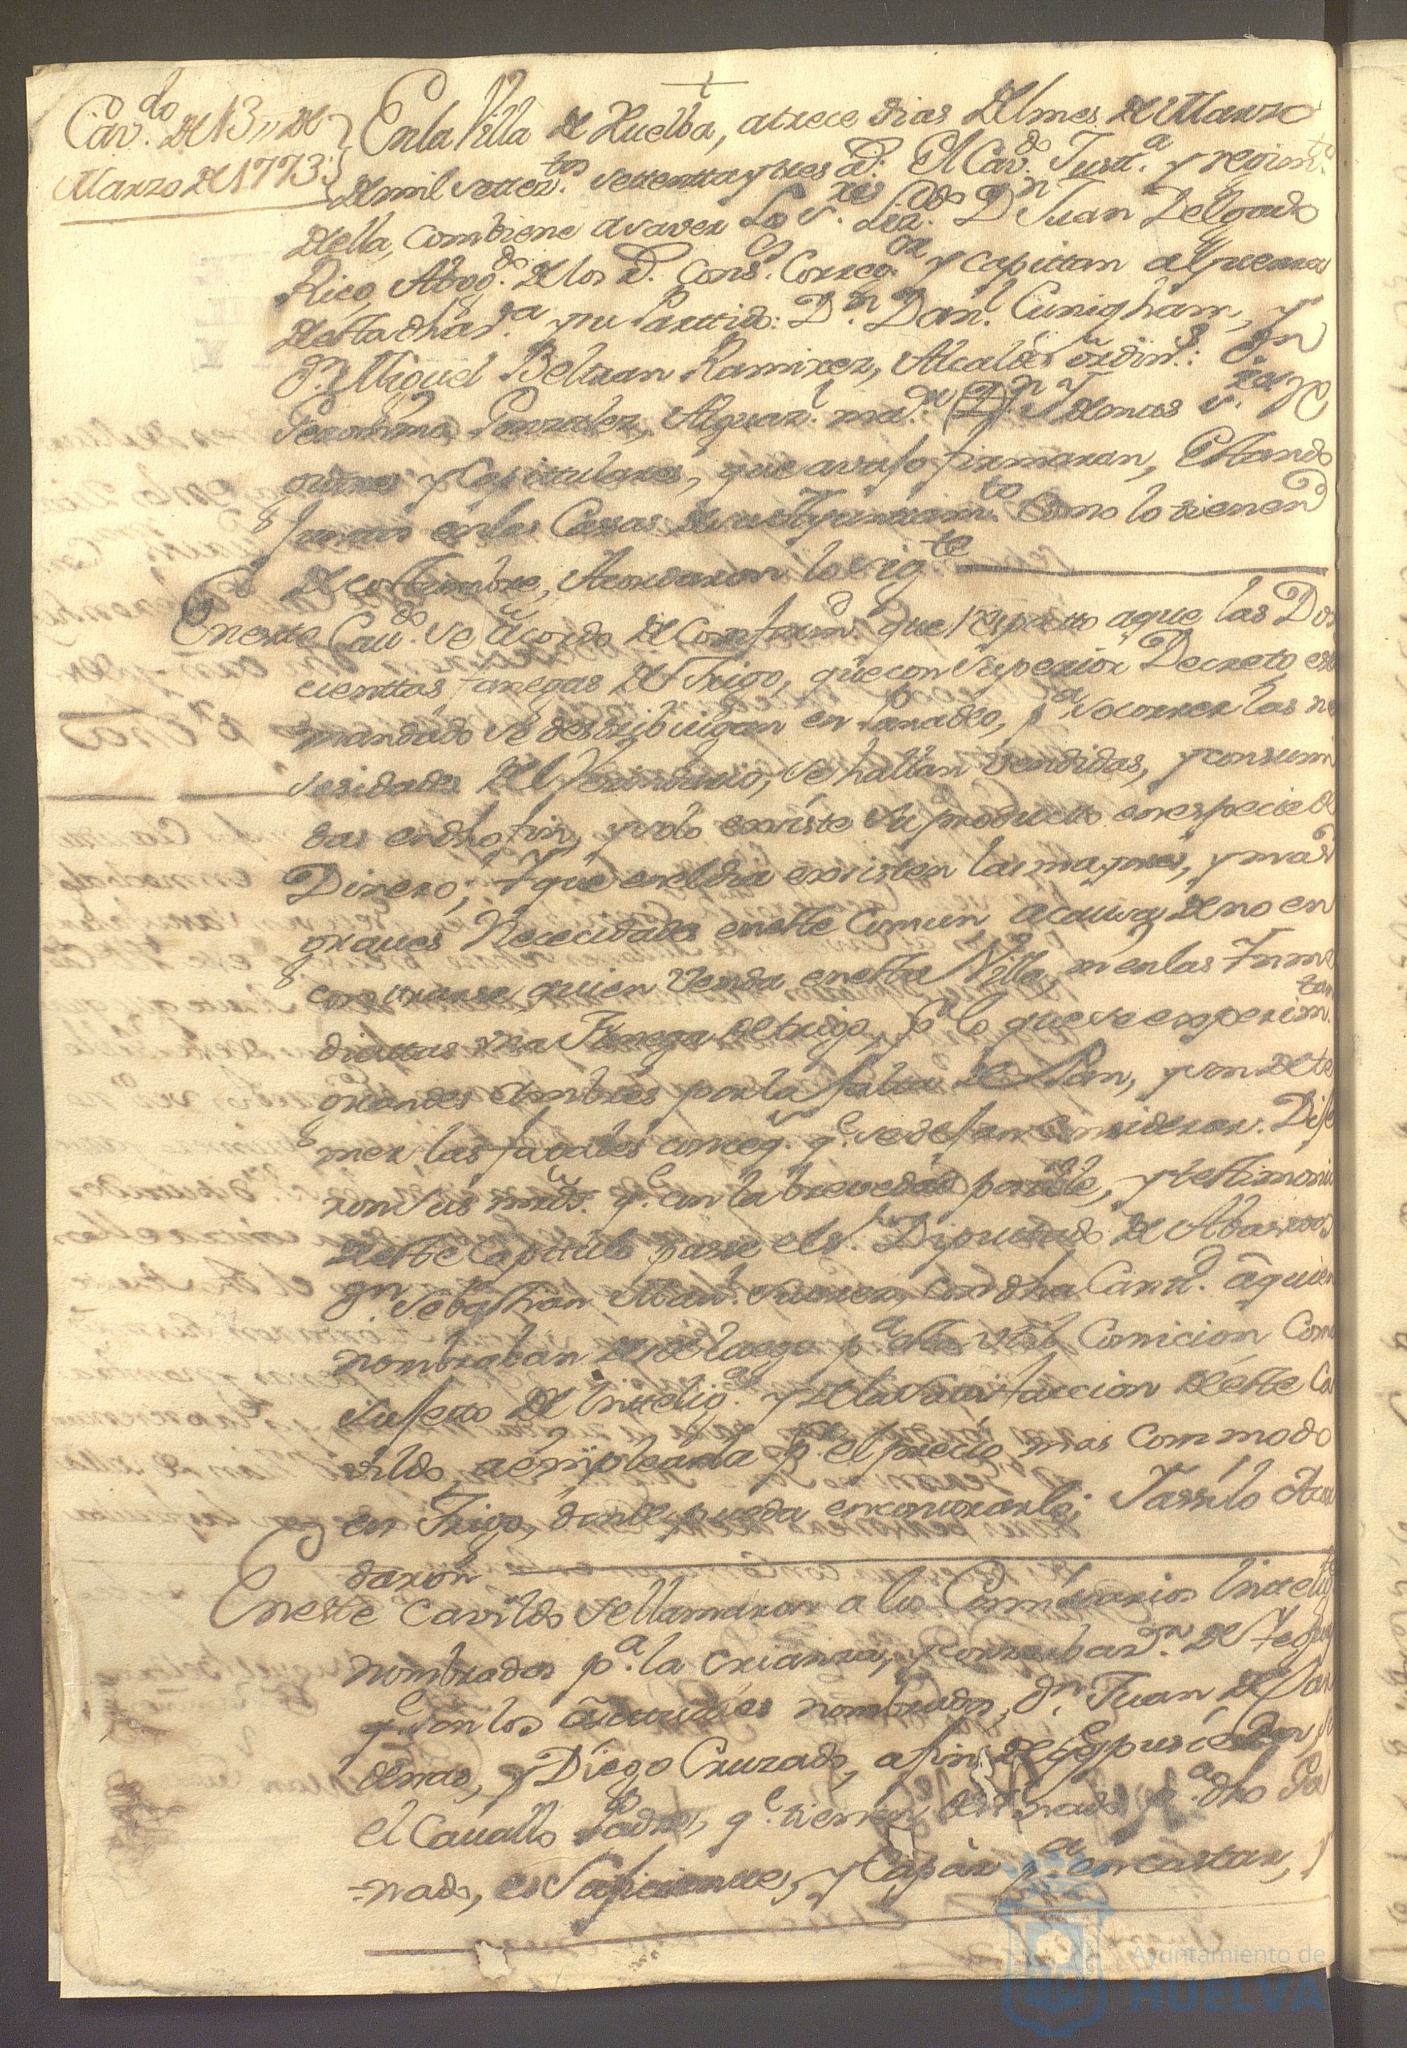 Cav.do de 13,, de
Marzo de 1773.
En la Villa de Huelba, a trece dias del mes de Marzo
de mil setez.tos settentta y tres a.s El Cav.do Just.a y regim.to
della, combiene a saver Los S.res Liz.do D.n Juan Delgado
Rico, Abog.do de los R.s Cons.s Correg.or y capittan a guerra
de esta dha V.a y su Parttido: D.n Dan.l Cunigham, y
D.n Miguel Beltran Ramirez, Alcaldes ordin.s: D.n
Geronimo Gonzalez, Alguaz.l ma.or y demas s.res Re
gidores y Capitulares, que avajo firmaran, Estando
Juntos en las Casas de su Ayuntam.to como lo tienen
de costtumbre, Acordaron lo sig.te
En este Cav.do se acordo de conform.d que respectto a que las Dos
cienttas fanegas de Trigo, que con Superior Decreto est
mandado se destribuigan en Panadeo, p.a socorrer las ne
sesidades del Vezindario, se hallan vendidas, y consumi
das en dho fin, y solo existe su producto en especie de
Dinero; Y que en el dia existen las mayores, y mas
graves Nececidades en este Comun, a causa de no en
contrarse quien venda en esta Villa, ni en las Inme
diattas una Fanega de trigo, p.r lo que se experim.tan
grandes por la falta de Pan, y son de te
mer las fatales conseq.s q.e se dejan considerar. Dije
ron sus mrds. q.e con la brevedad posible, y testimonio
de este Capitulo pase el S.r Diputado de Abastos
D.n Sebastian Man.l Suarez, con dha Cant.d a quien
nombraban desde luego p.a esta util Comicion como
sujeto de Intelig.a y de la satisfaccion de este Ca
vildo, a emplearla p.r el precio mas commodo
en Trigo, donde pueda encontrarlo; Y assi lo Acor
daron
En este Cavildo se llamaron a los Comisarios Intelig.tes
nombrados p.a la crianza, y conserbaz.on de Yeguas
q.e son los actuales nombrados, D.n Juan de Car
denas, y Diego Cruzado, a fin de q.e expusiesen si
el Cavallo Padre, q.e tienen destinado p.a dho Ga
nado, es Suficiente, y Capaz p.a encastar, y
Ayuntamiento de
HUELVA